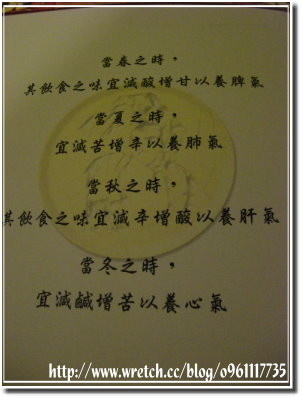 當春之時，
其飲食之味宜減酸增甘以養脾氣
當夏之時，
宜減苦增辛以養肺氣
當秋之時，
其飲食之味宜減辛增酸以養肝氣
當冬之時，
宜減鹹增苦以養心氣
http://www.wretch.cc/blog/o961117735